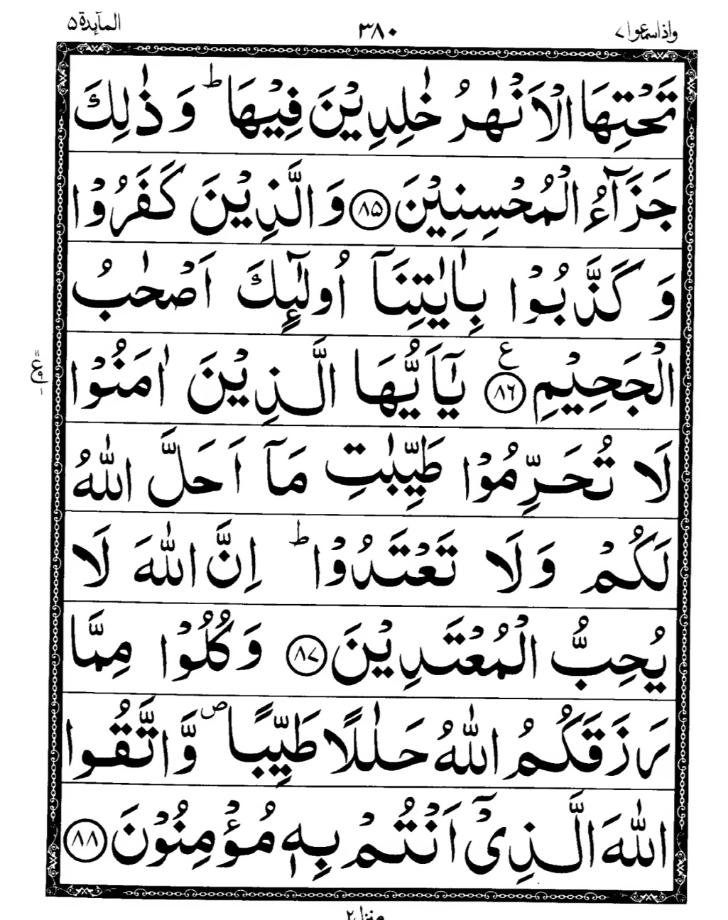 واذاسمعوا ٧ ٣٨٠ المآبدة ٥
تَحْتِهَا الْاَنْهٰرُ خٰلِدِيْنَ فِيْهَا ؕ وَ ذٰلِكَ
جَزَآءُ الْمُحْسِنِيْنَ ﴿٨٥﴾ وَ الَّذِيْنَ كَفَرُوْا
وَ كَذَّبُوْا بِاٰيٰتِنَاۤ اُولٰٓئِكَ اَصْحٰبُ
الْجَحِيْمِ ﴿٨٦﴾ ع يٰۤاَيُّهَا الَّذِيْنَ اٰمَنُوْا
لَا تُحَرِّمُوْا طَيِّبٰتِ مَاۤ اَحَلَّ اللّٰهُ
لَكُمْ وَلَا تَعْتَدُوْا ؕ اِنَّ اللّٰهَ لَا
يُحِبُّ الْمُعْتَدِيْنَ ﴿٨٧﴾ وَ كُلُوْا مِمَّا
رَزَقَكُمُ اللّٰهُ حَلٰلًا طَيِّبًا ۪ وَّ اتَّقُوا
اللّٰهَ الَّذِيْۤ اَنْتُمْ بِهٖ مُؤْمِنُوْنَ ﴿٨٨﴾
منزل ٢